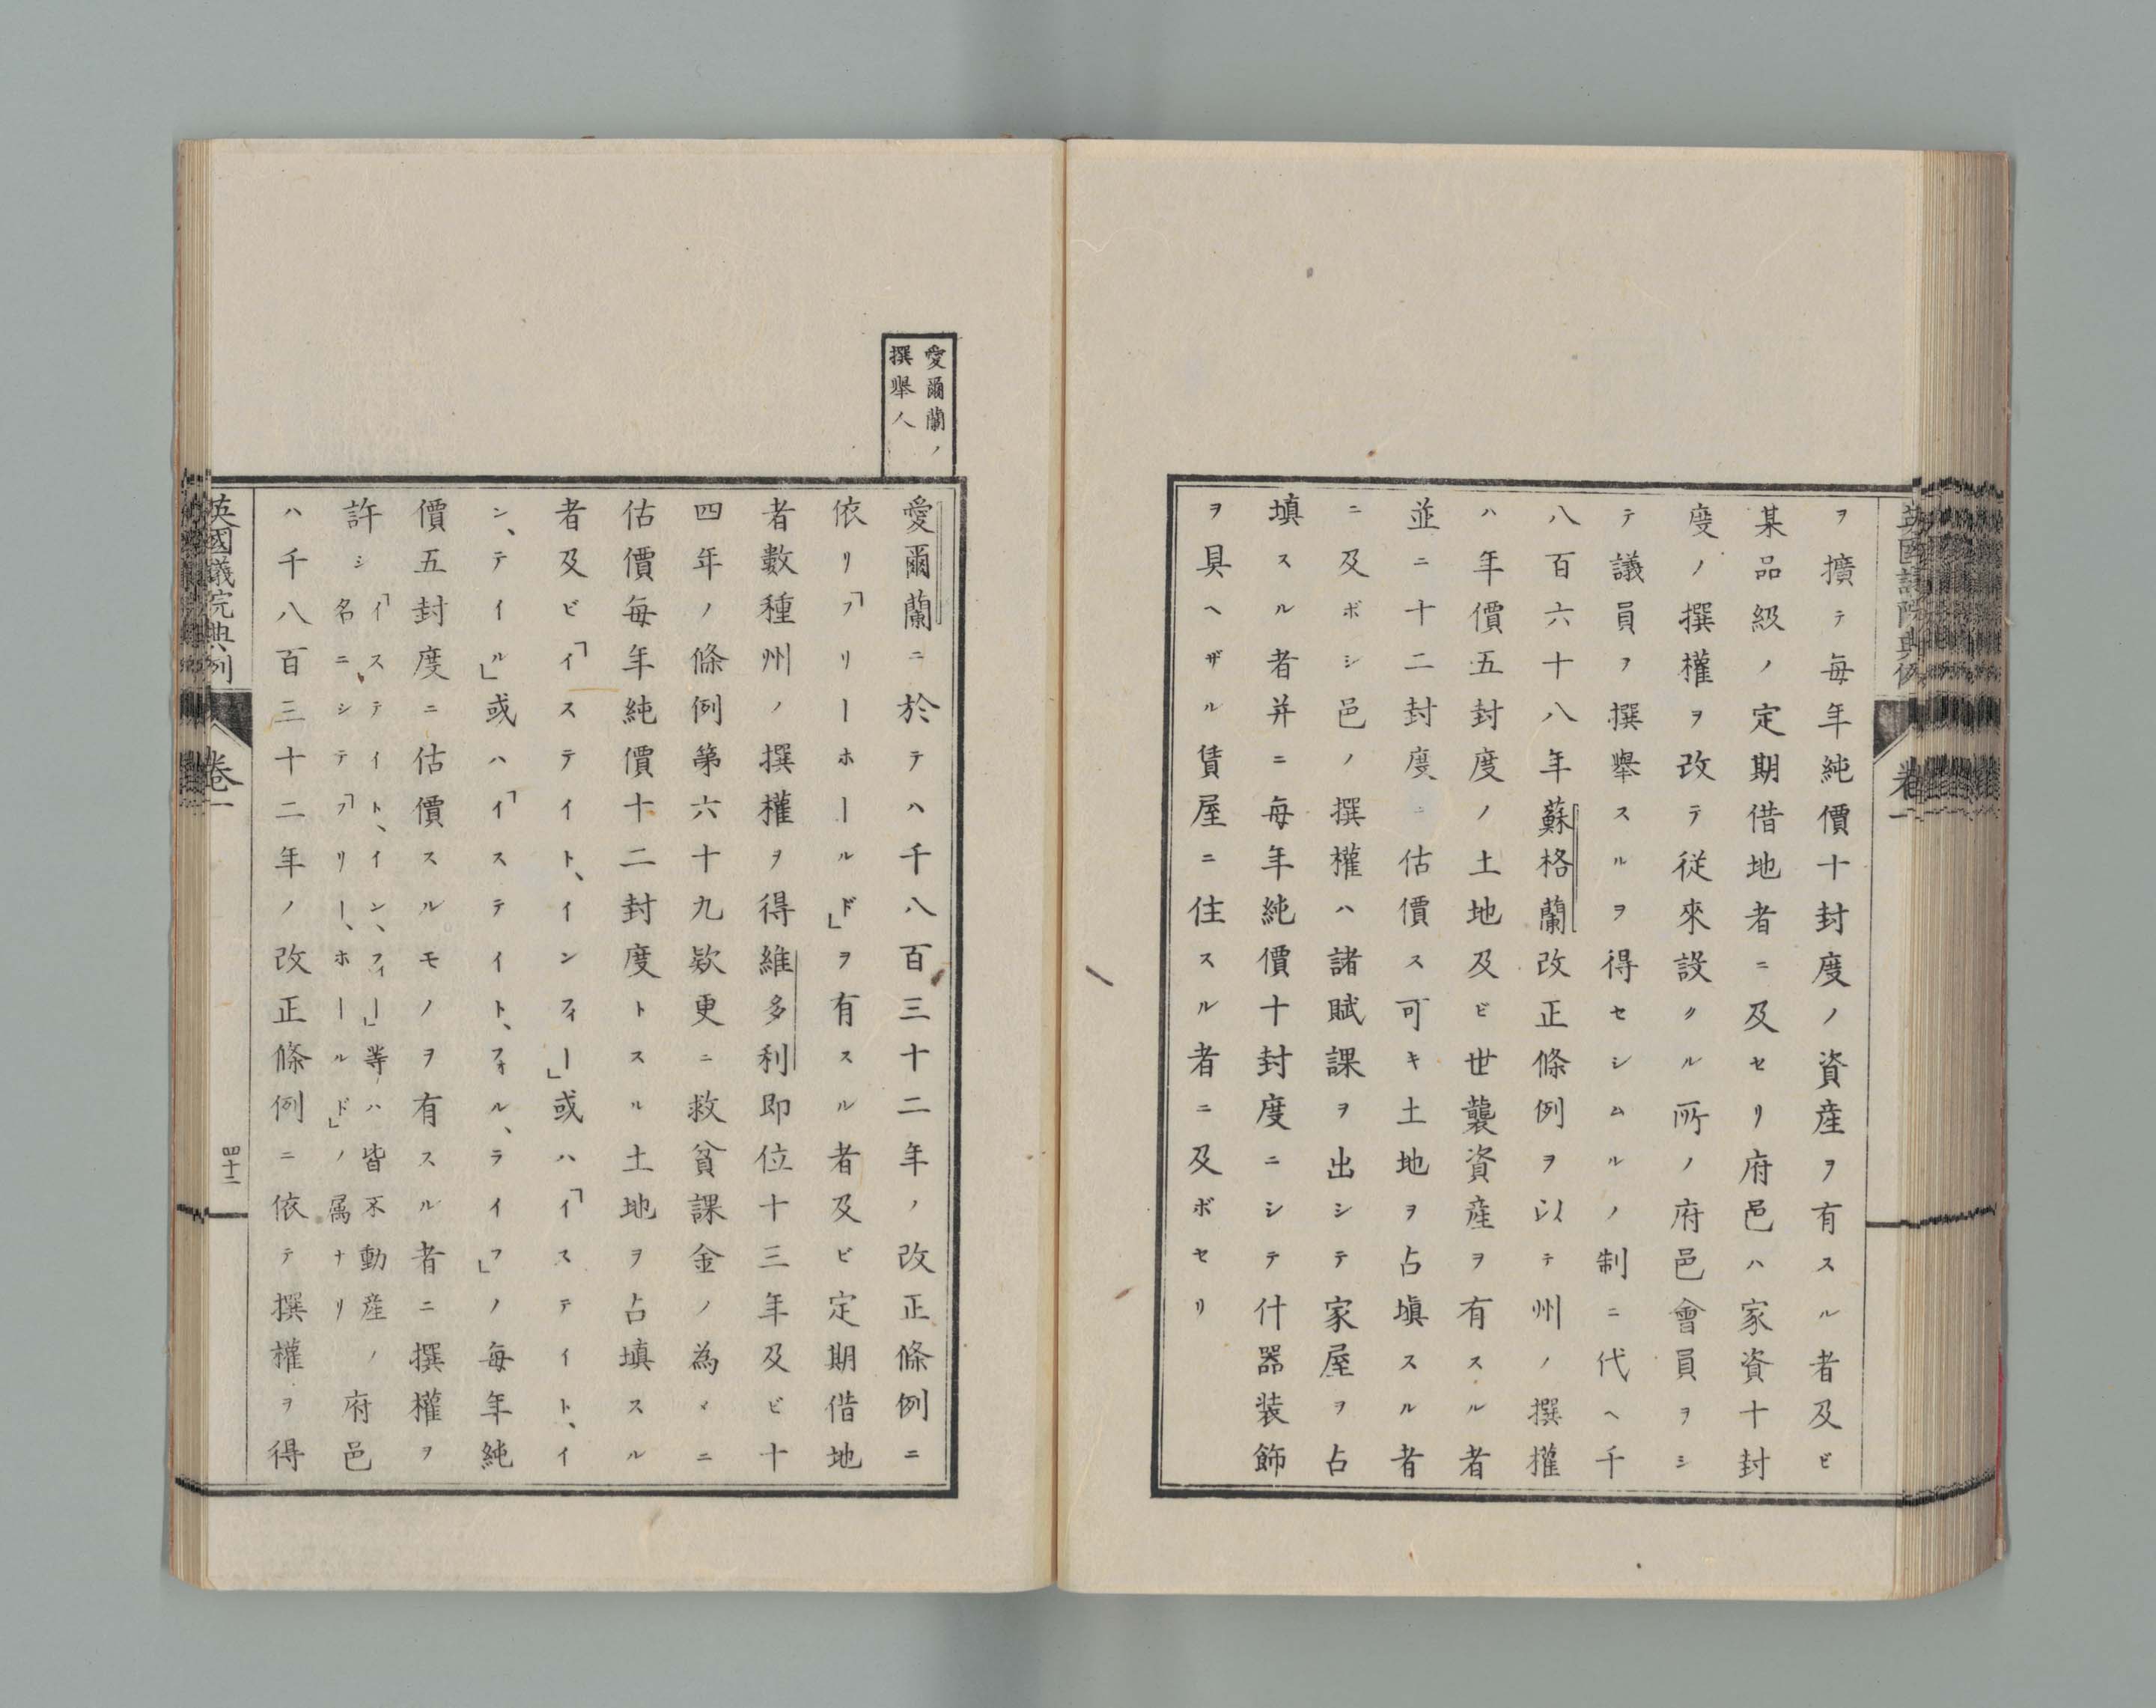 ヲ擴テ毎年純價十封度ノ資産ヲ有スル者及ビ
某品級ノ定期借地者ニ及セリ府邑ハ家資十封
度ノ撰權ヲ改テ従來設クル所ノ府邑會員ヲシ
テ議員ヲ撰舉スルヲ得セシムルノ制ニ代ヘ千
八百六十八年蘇格蘭改正條例ヲ以テ州ノ撰權
ハ年價五封度ノ土地及ビ世襲資産ヲ有スル者
並ニ十二封度ニ估價ス可キ土地ヲ占塡スル者
ニ及ボシ邑ノ撰權ハ諸賦課ヲ出シテ家屋ヲ占
塡スル者并ニ毎年純價十封度ニシテ什器装飾
ヲ具ヘザル賃屋ニ住スル者ニ及ボセリ
愛爾蘭ノ
撰舉人
愛爾蘭ニ於テハ千八百三十二年ノ改正條例ニ
依リ「フリーホールド」ヲ有スル者及ビ定期借地
者數種州ノ撰權ヲ得維多利即位十三年及ビ十
四年ノ條例第六十九欵更ニ救貧課金ノ為メニ
估價毎年純價十二封度トスル土地ヲ占塡スル
者及ビ「イステイト、インフィー」或ハ「イステイト、イ
ン、テイル」或ハ「イステイト、フォル、ライフ」ノ毎年純
價五封度ニ估價スルモノヲ有スル者ニ撰權ヲ
許シ「イステイト、イン、フィー」等ハ皆不動産ノ
名ニシテ「フリー、ホールド」ノ属ナリ府邑
ハ千八百三十二年ノ改正條例ニ依テ撰權ヲ得
英國議院典例
卷一
四十二